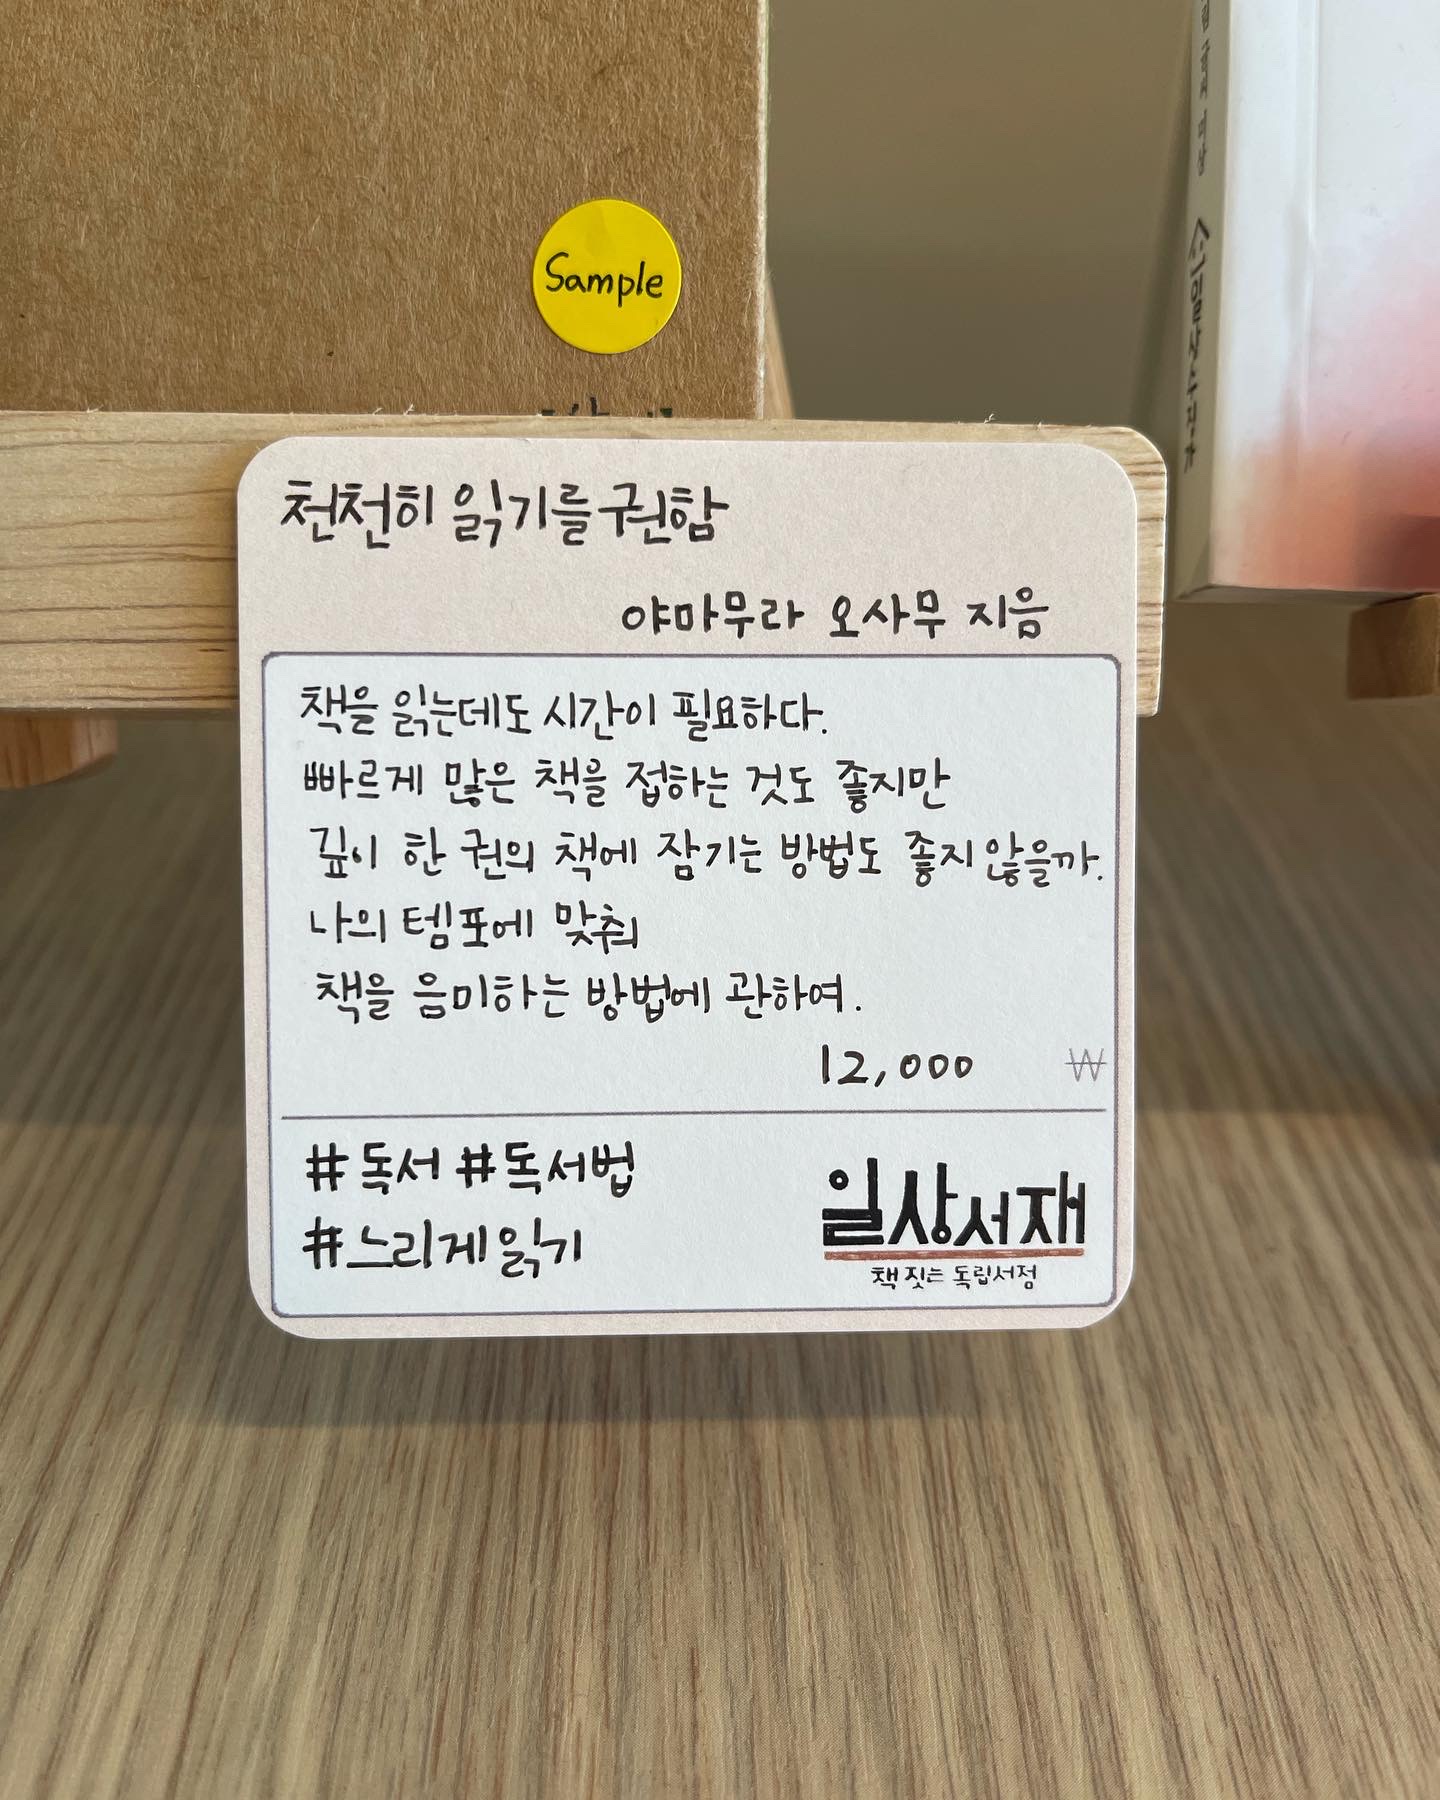 Sample
천천히 읽기를 권함
야마무라 오사무 지음
책을 읽는데도 시간이 필요하다.
빠르게 많은 책을 접하는 것도 좋지만
깊이 한 권의 책에 잠기는 방법도 좋지 않을까.
나의 템포에 맞춰
책을 음미하는 방법에 관하여.
12,000 ₩
#독서 #독서법
#느리게읽기
일상서재
책 짓는 독립서점